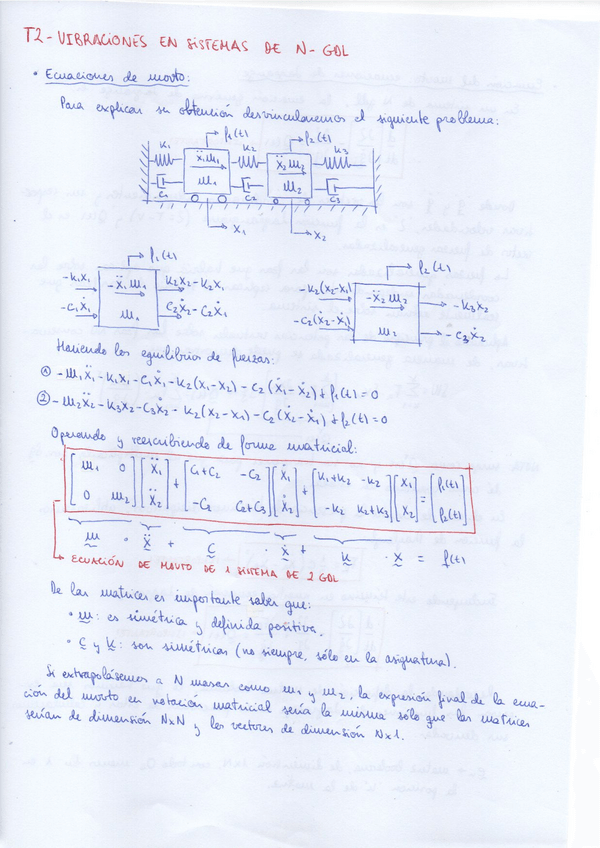 T2 - VIBRACIONES EN SISTEMAS DE N-GDL
• Ecuaciones de movto:
Para explicar su obtención desvincularemos el siguiente problema:
f₁(t) f₂(t)
K₁ K₂ K₃
ẍ₁m₁ ẍ₂m₂
m₁ m₂
C₁ C₂ C₃
x₁ x₂
f₁(t) f₂(t)
-K₁x₁ K₂x₂-K₂x₁ -K₂(x₂-x₁)
-ẍ₁m₁ -ẍ₂m₂ -K₃x₂
-C₁ẋ₁ m₁ C₂ẋ₂-C₂ẋ₁ -C₂(ẋ₂-ẋ₁) m₂ -C₃ẋ₂
Haciendo los equilibrios de fuerzas:
① -m₁ẍ₁-K₁x₁-C₁ẋ₁-K₂(x₁-x₂)-C₂(ẋ₁-ẋ₂)+f₁(t)=0
② -m₂ẍ₂-K₃x₂-C₃ẋ₂-K₂(x₂-x₁)-C₂(ẋ₂-ẋ₁)+f₂(t)=0
Operando y reescribiendo de forma matricial:
[m₁ 0] [ẍ₁] + [C₁+C₂ -C₂] [ẋ₁] + [K₁+K₂ -K₂] [x₁] = [f₁(t)]
[0 m₂] [ẍ₂] [-C₂ C₂+C₃] [ẋ₂] [-K₂ K₂+K₃] [x₂] [f₂(t)]
m · ẍ + C · ẋ + K · x = f(t)
ECUACIÓN DE MOVTO DE 1 SISTEMA DE 2 GDL
De las matrices es importante saber que:
• m: es simétrica y definida positiva.
• C y K: son simétricas (no siempre, sólo en la asignatura).
Si extrapolásemos a N masas como m₁ y m₂, la expresión final de la ecua-
ción del movto en notación matricial sería la misma sólo que las matrices
serían de dimensión NxN y los vectores de dimensión Nx1.